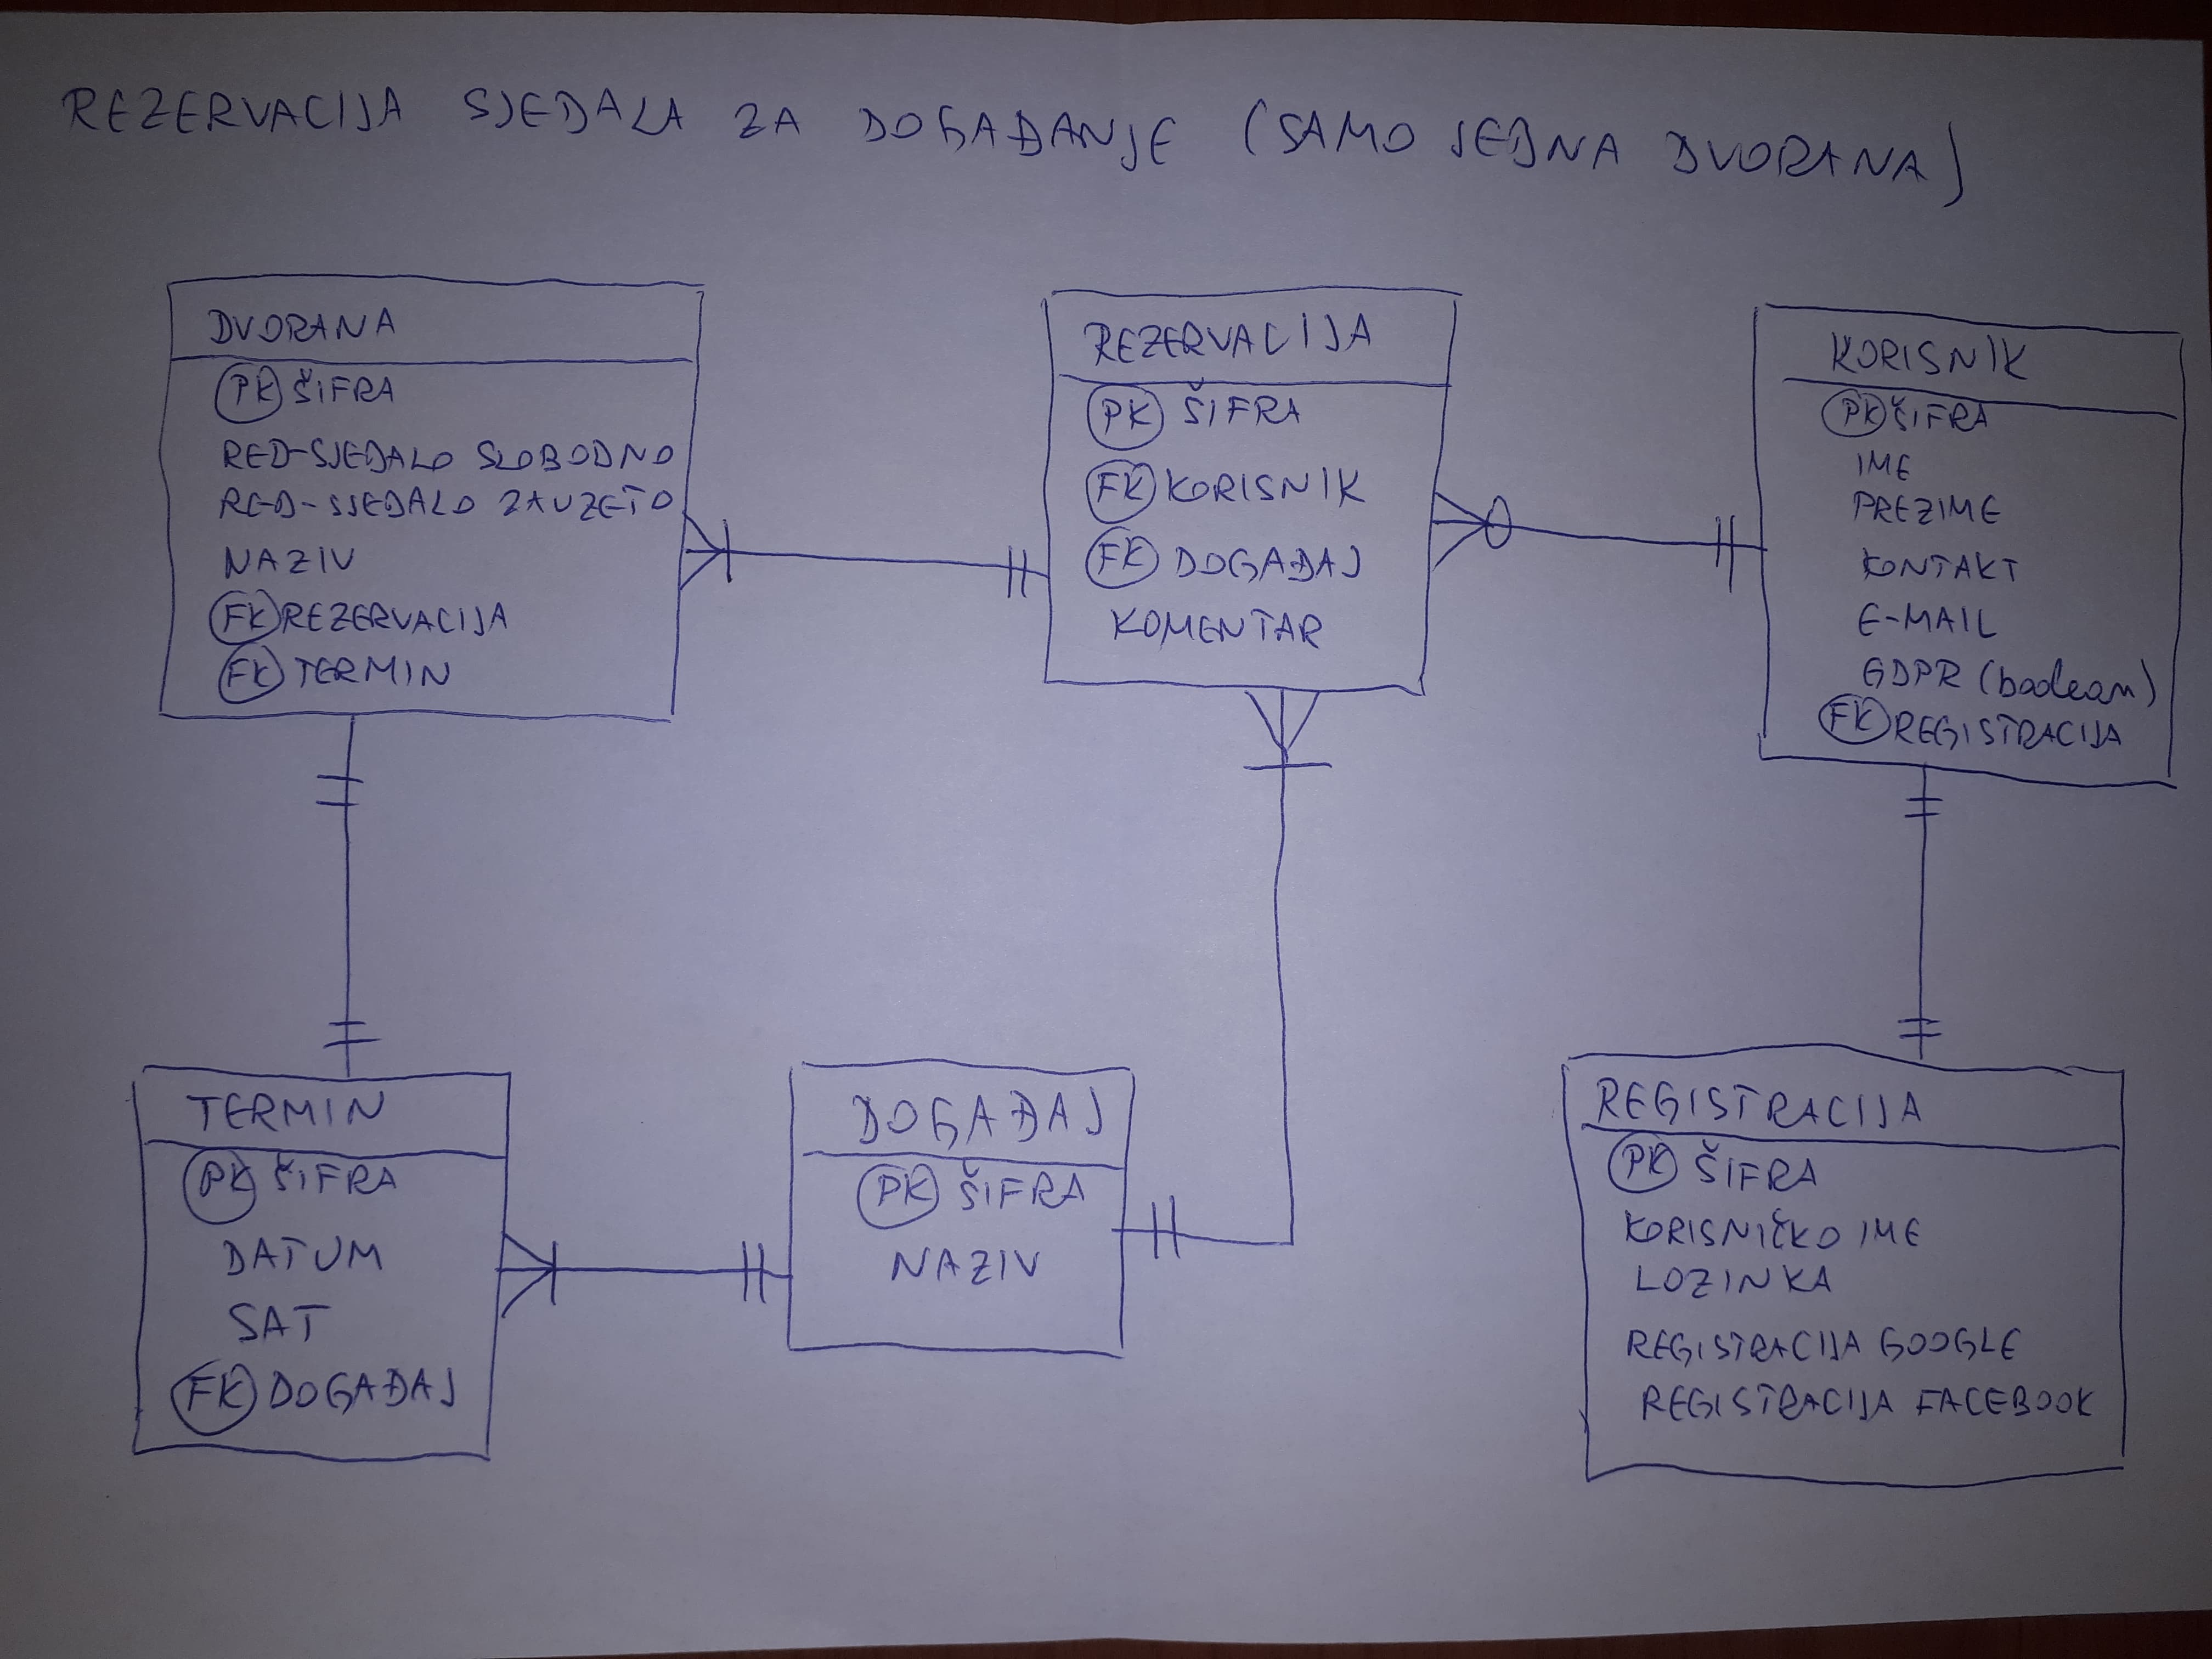 REZERVACIJA SJEDALA ZA DOGAĐANJE (SAMO JEDNA DVORANA)
DVORANA
PK ŠIFRA
RED-SJEDALO SLOBODNO
RED-SJEDALO ZAUZETO
NAZIV
FK REZERVACIJA
FK TERMIN
REZERVACIJA
PK ŠIFRA
FK KORISNIK
FK DOGAĐAJ
KOMENTAR
KORISNIK
PK ŠIFRA
IME
PREZIME
KONTAKT
E-MAIL
GDPR (boolean)
FK REGISTRACIJA
TERMIN
PK ŠIFRA
DATUM
SAT
FK DOGAĐAJ
DOGAĐAJ
PK ŠIFRA
NAZIV
REGISTRACIJA
PK ŠIFRA
KORISNIČKO IME
LOZINKA
REGISTRACIJA GOOGLE
REGISTRACIJA FACEBOOK